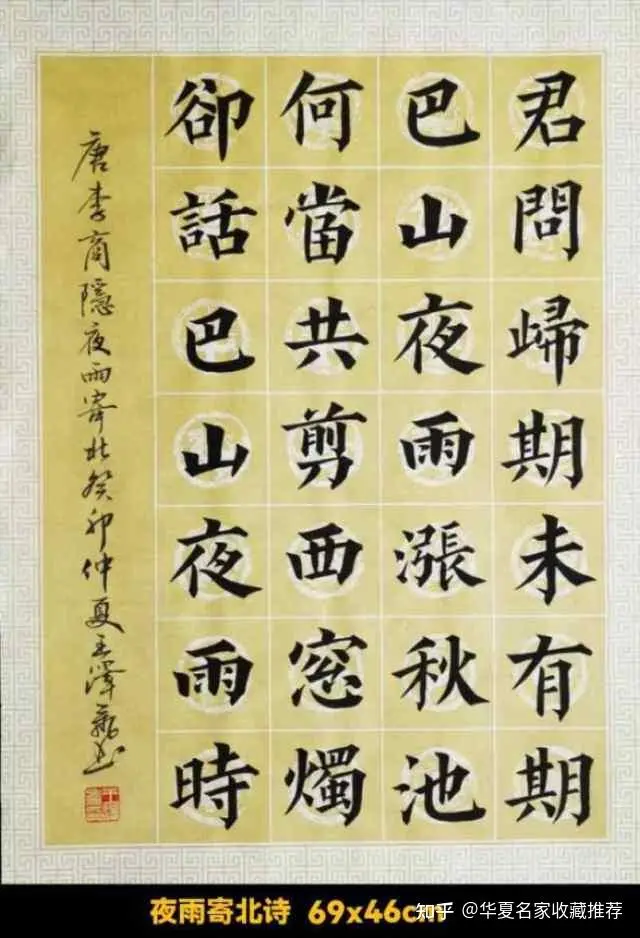 君問歸期未有期
巴山夜雨漲秋池
何當共剪西窓燭
卻話巴山夜雨時
唐李商隱夜雨寄北癸卯仲夏王澤書
夜雨寄北诗 69x46cm
知乎 @华夏名家收藏推荐